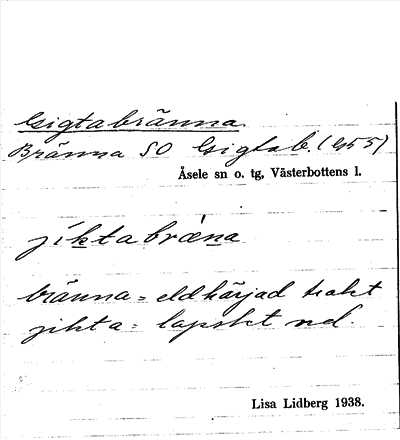 Gigtabränna
Bränna SO Gigtab. (G55)
Åsele sn o. tg, Västerbottens l.
jíktabrǽna
bränna = eldhärjad trakt
jikta = lapskt nd.
Lisa Lidberg 1938.